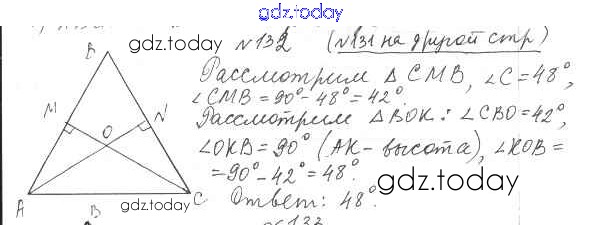 gdz.today
№132 (№131 на другой стр)
gdz.today
Рассмотрим △ CMB, ∠C = 48°,
∠CMB = 90° - 48° = 42°.
Рассмотрим △BOK: ∠CBO = 42°,
∠OKB = 90° (AK - высота), ∠KOB =
= 90° - 42° = 48°.
Ответ: 48°.
gdz.today
B
M
N
O
A
B
C
gdz.today